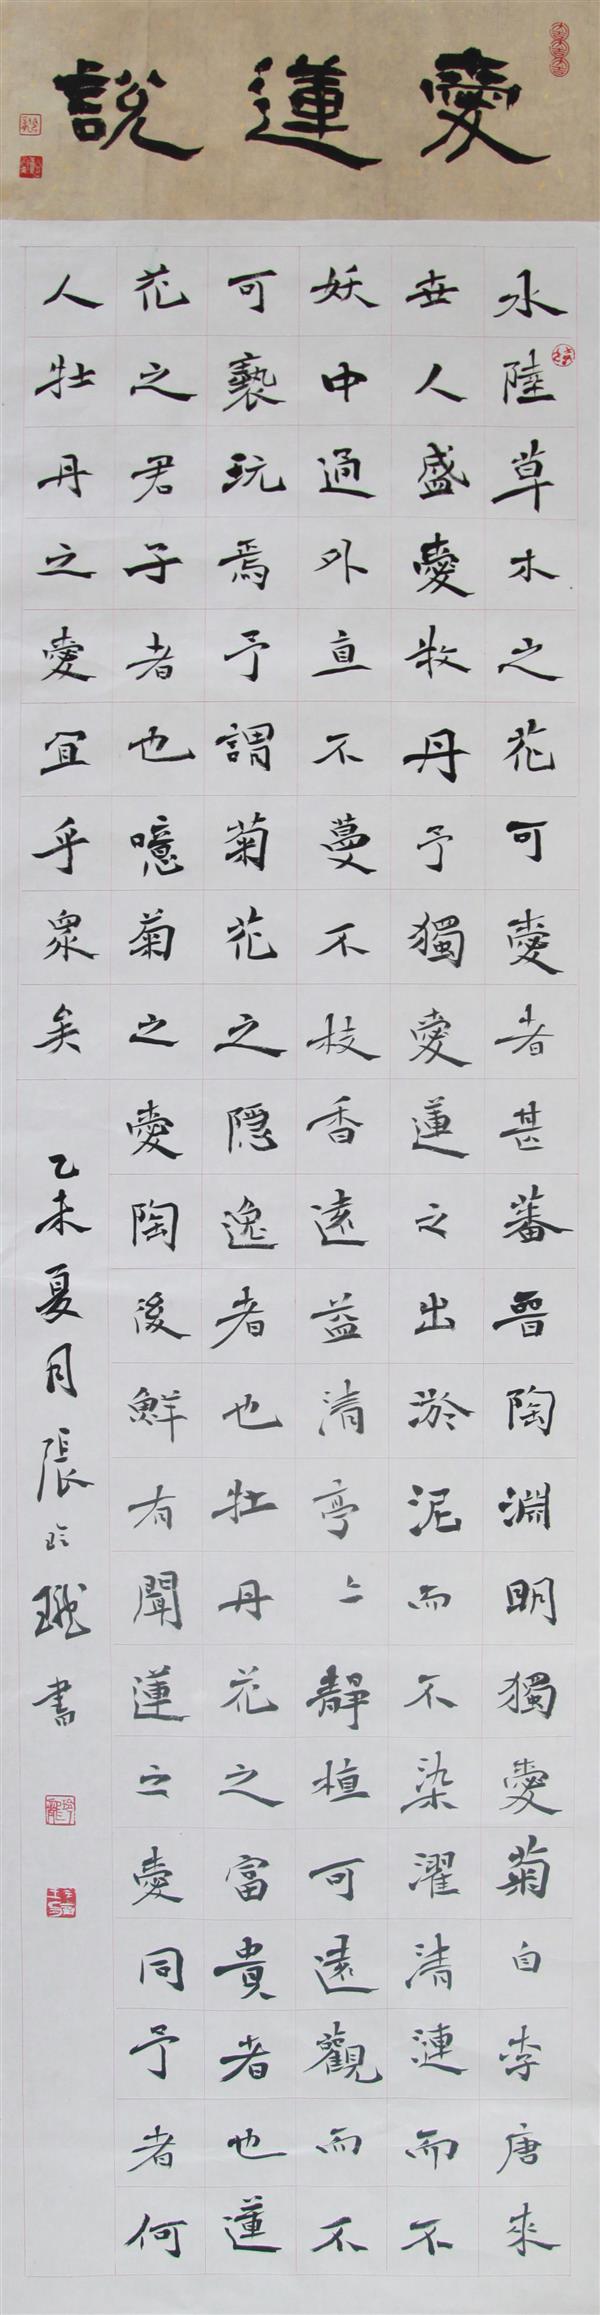 愛蓮說
水陸草木之花可愛者甚蕃晉陶淵明獨愛菊自李唐來
世人盛愛牧丹予獨愛蓮之出淤泥而不染濯清漣而不
妖中通外直不蔓不枝香遠益清亭々靜植可遠觀而不
可褻玩焉予謂菊花之隱逸者也牡丹花之富貴者也蓮
花之君子者也噫菊之愛陶後鮮有聞蓮之愛同予者何
人牡丹之愛宜乎眾矣 乙未夏月張玲瓏書